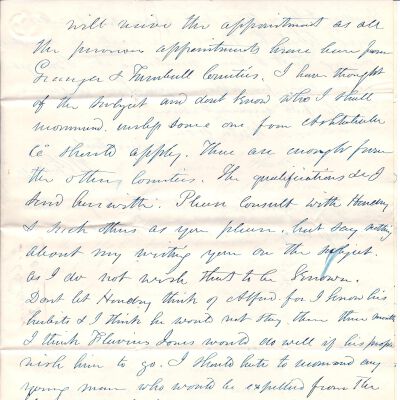 will receive the appointment as all
the previous appointments have been from
Granger & Trumbull Counties. I have thought
of the subject and dont know who I shall
recommend, unless some one from Ashtabula
Co should apply. There are enough from
the other Counties. The qualifications &c I
send herewith. Please consult with Hendry
& such others as you please, but say nothing
about my writing you on the subject.
as I do not wish that to be known.
Dont let Hendry think of Alfred for I know his
habits & I think he would not stay there three months
I think Flavius Jones would do well if his people
wish him to go. I should hate to recommend any
young man who would be expelled from the